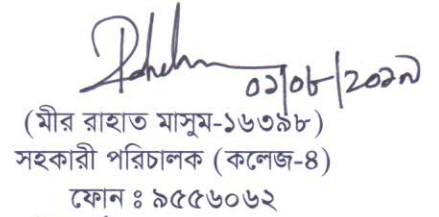 ০১/০৮/২০১৭
(মীর রাহাত মাসুম-১৬৩৯৮)
সহকারী পরিচালক (কলেজ-৪)
ফোন ঃ ৯৫৫৬০৬২